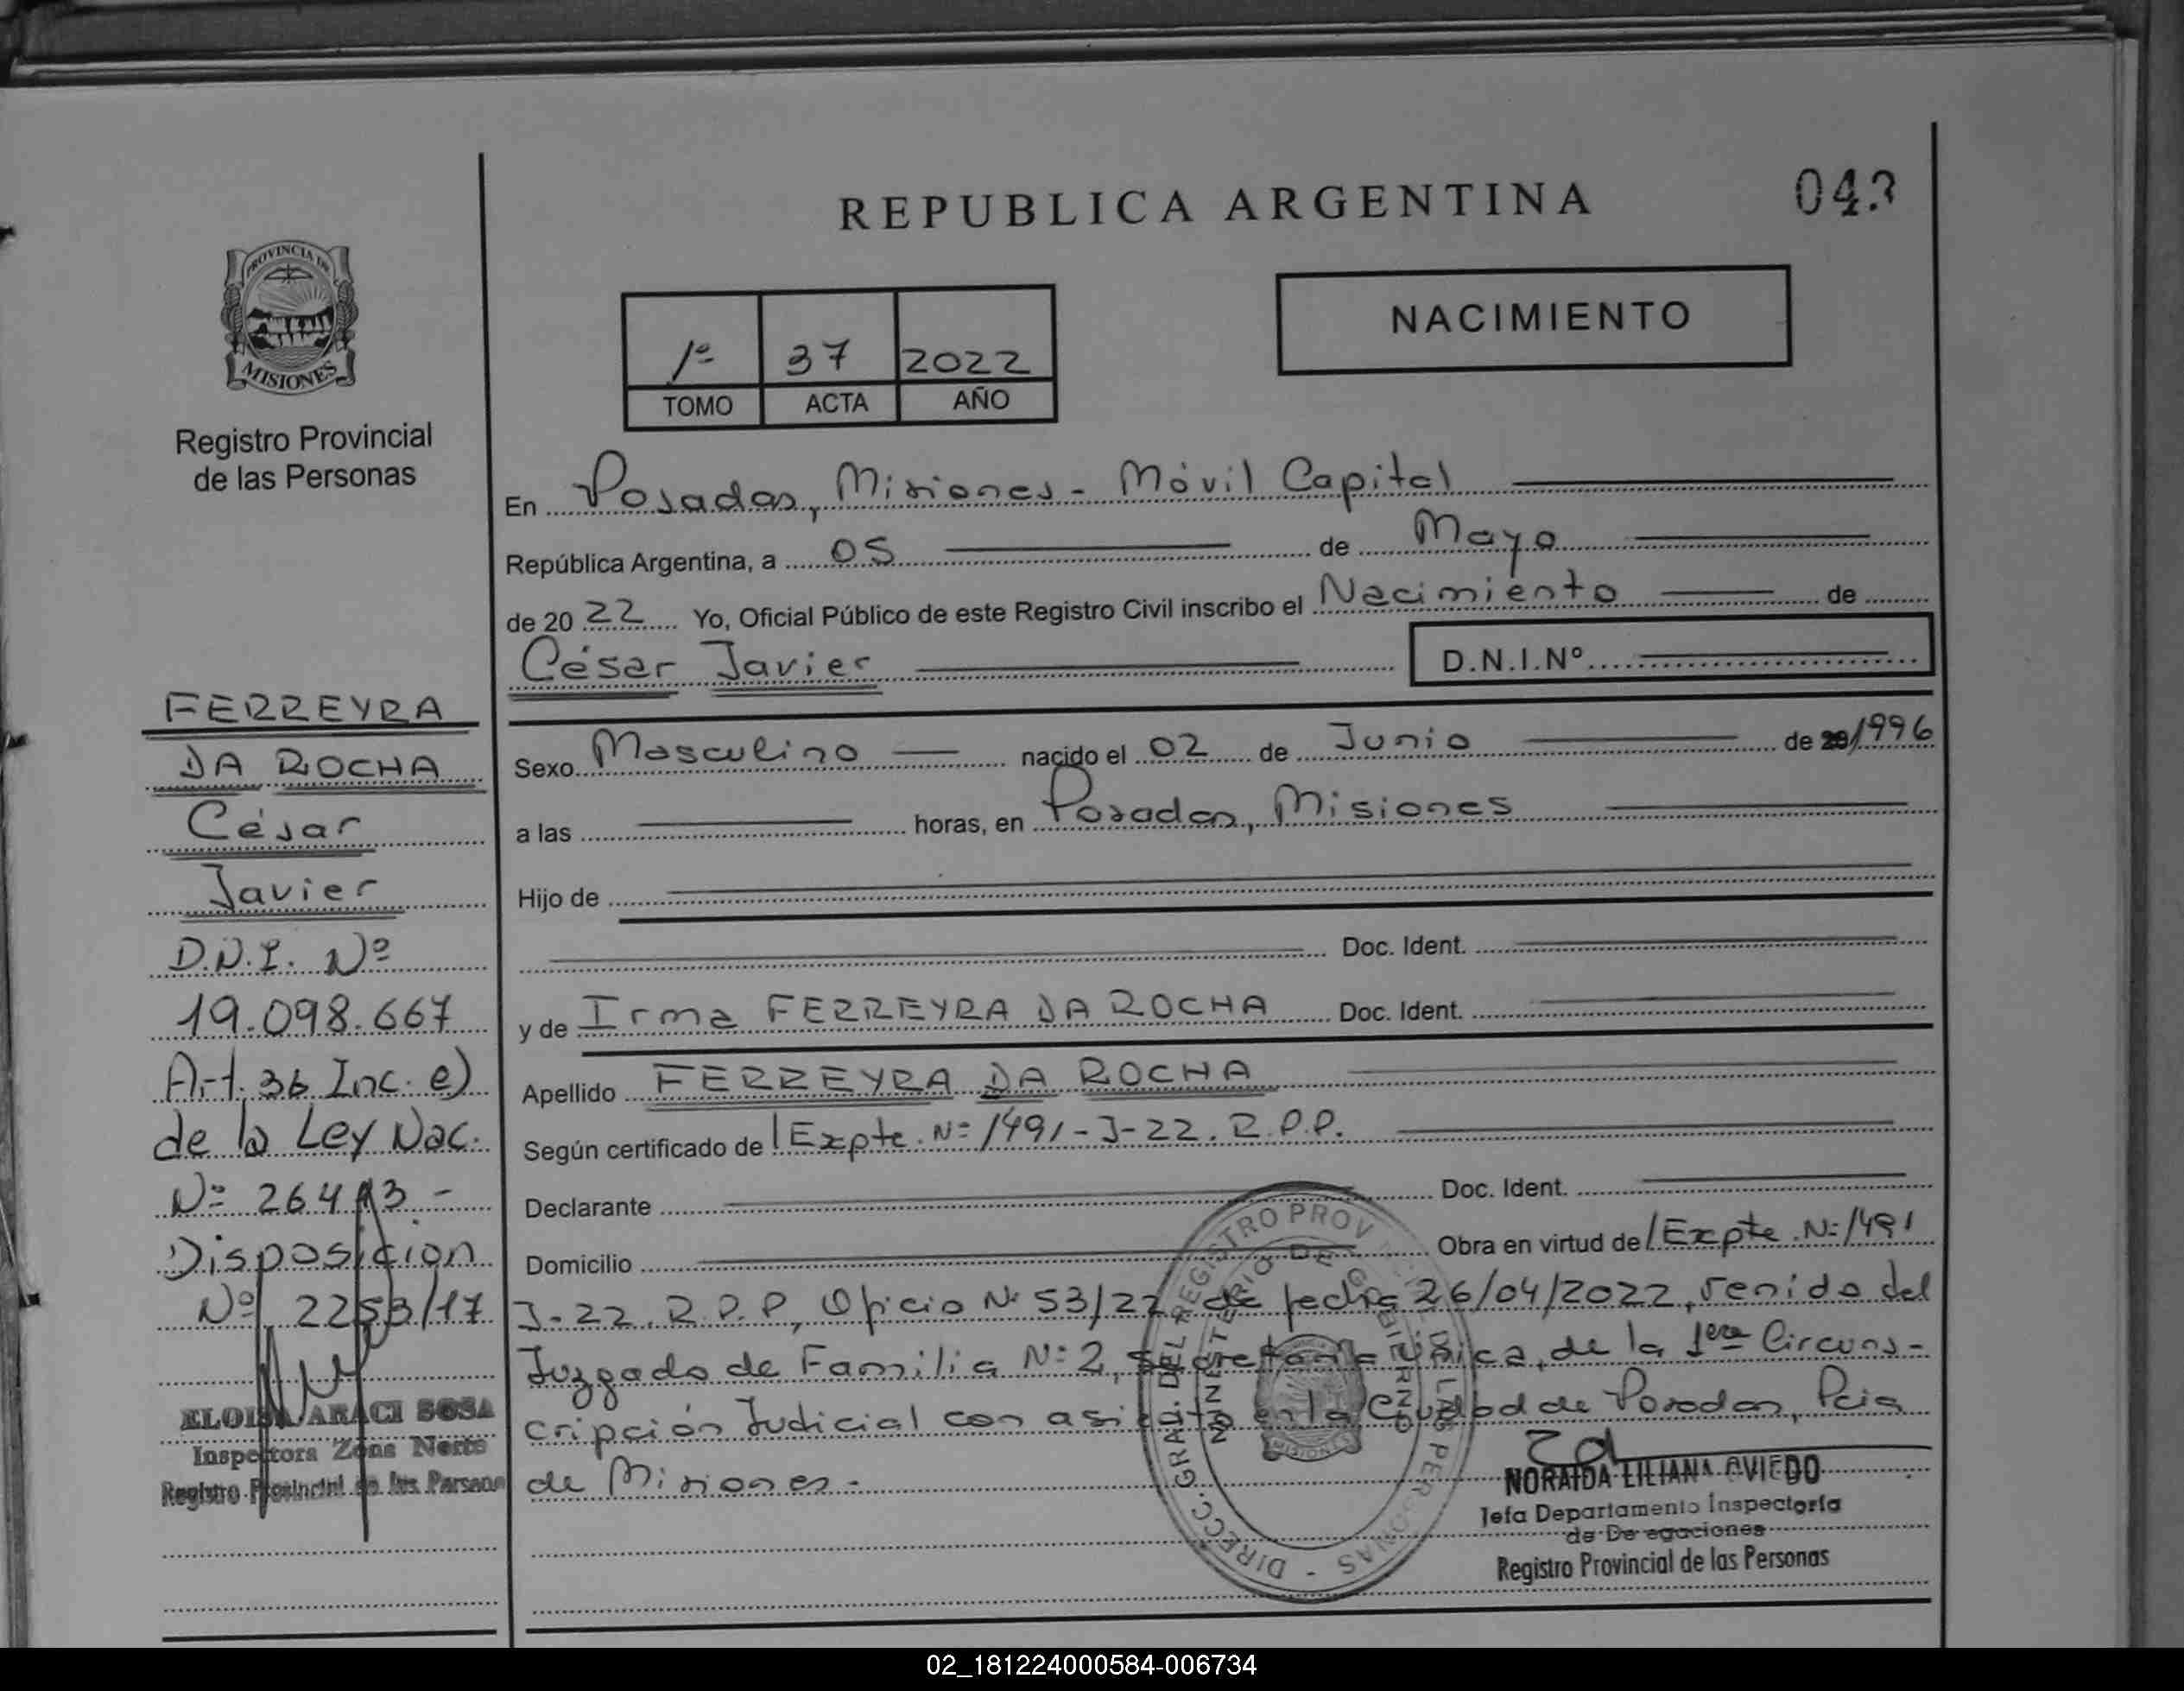 REPUBLICA ARGENTINA
043
PROVINCIA DE
MISIONES
Registro Provincial
de las Personas
1º 37 2022
TOMO ACTA AÑO
NACIMIENTO
En Posadas, Misiones - Móvil Capital
República Argentina, a 05 de Mayo
de 20 22 Yo, Oficial Público de este Registro Civil inscribo el Nacimiento de
César Javier D.N.I.Nº
Sexo Masculino nacido el 02 de Junio de 20 1996
a las horas, en Posadas, Misiones
Hijo de
Doc. Ident.
y de Irma FERREYRA DA ROCHA Doc. Ident.
Apellido FERREYRA DA ROCHA
Según certificado de Expte. Nº 1491-J-22. R.P.P.
Declarante Doc. Ident.
Domicilio Obra en virtud de Expte. Nº 1491
J-22. R.P.P, Oficio Nº 53/22 de fecha 26/04/2022, venido del
Juzgado de Familia Nº 2, Secretaría Única, de la 1era Circuns-
cripción Judicial con asiento en la Ciudad de Posadas, Pcia
de Misiones.-
FERREYRA
DA ROCHA
César
Javier
D.N.I. Nº
19.098.667
Art. 36 Inc. e)
de la Ley Nac.
Nº 26413.-
Disposicion
Nº 2253/17
ELOISA ARACI SOSA
Inspectora Zona Norte
Registro Provincial de las Personas
DIRECC. GRAL. DEL REGISTRO PROV DE LAS PERSONAS -
MINISTERIO DE GOBIERNO
MISIONES
NORAIDA LILIANA OVIEDO
Jefa Departamento Inspectoría
de Delegaciones
Registro Provincial de las Personas
02_181224000584-006734